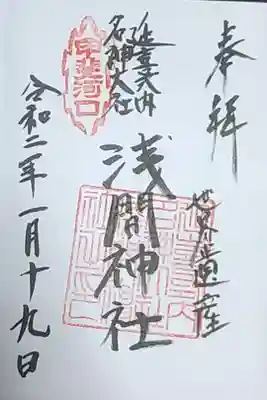 奉拝
世界遺産
延喜式内
名神大社
甲斐河口
浅間神社
令和二年一月十九日